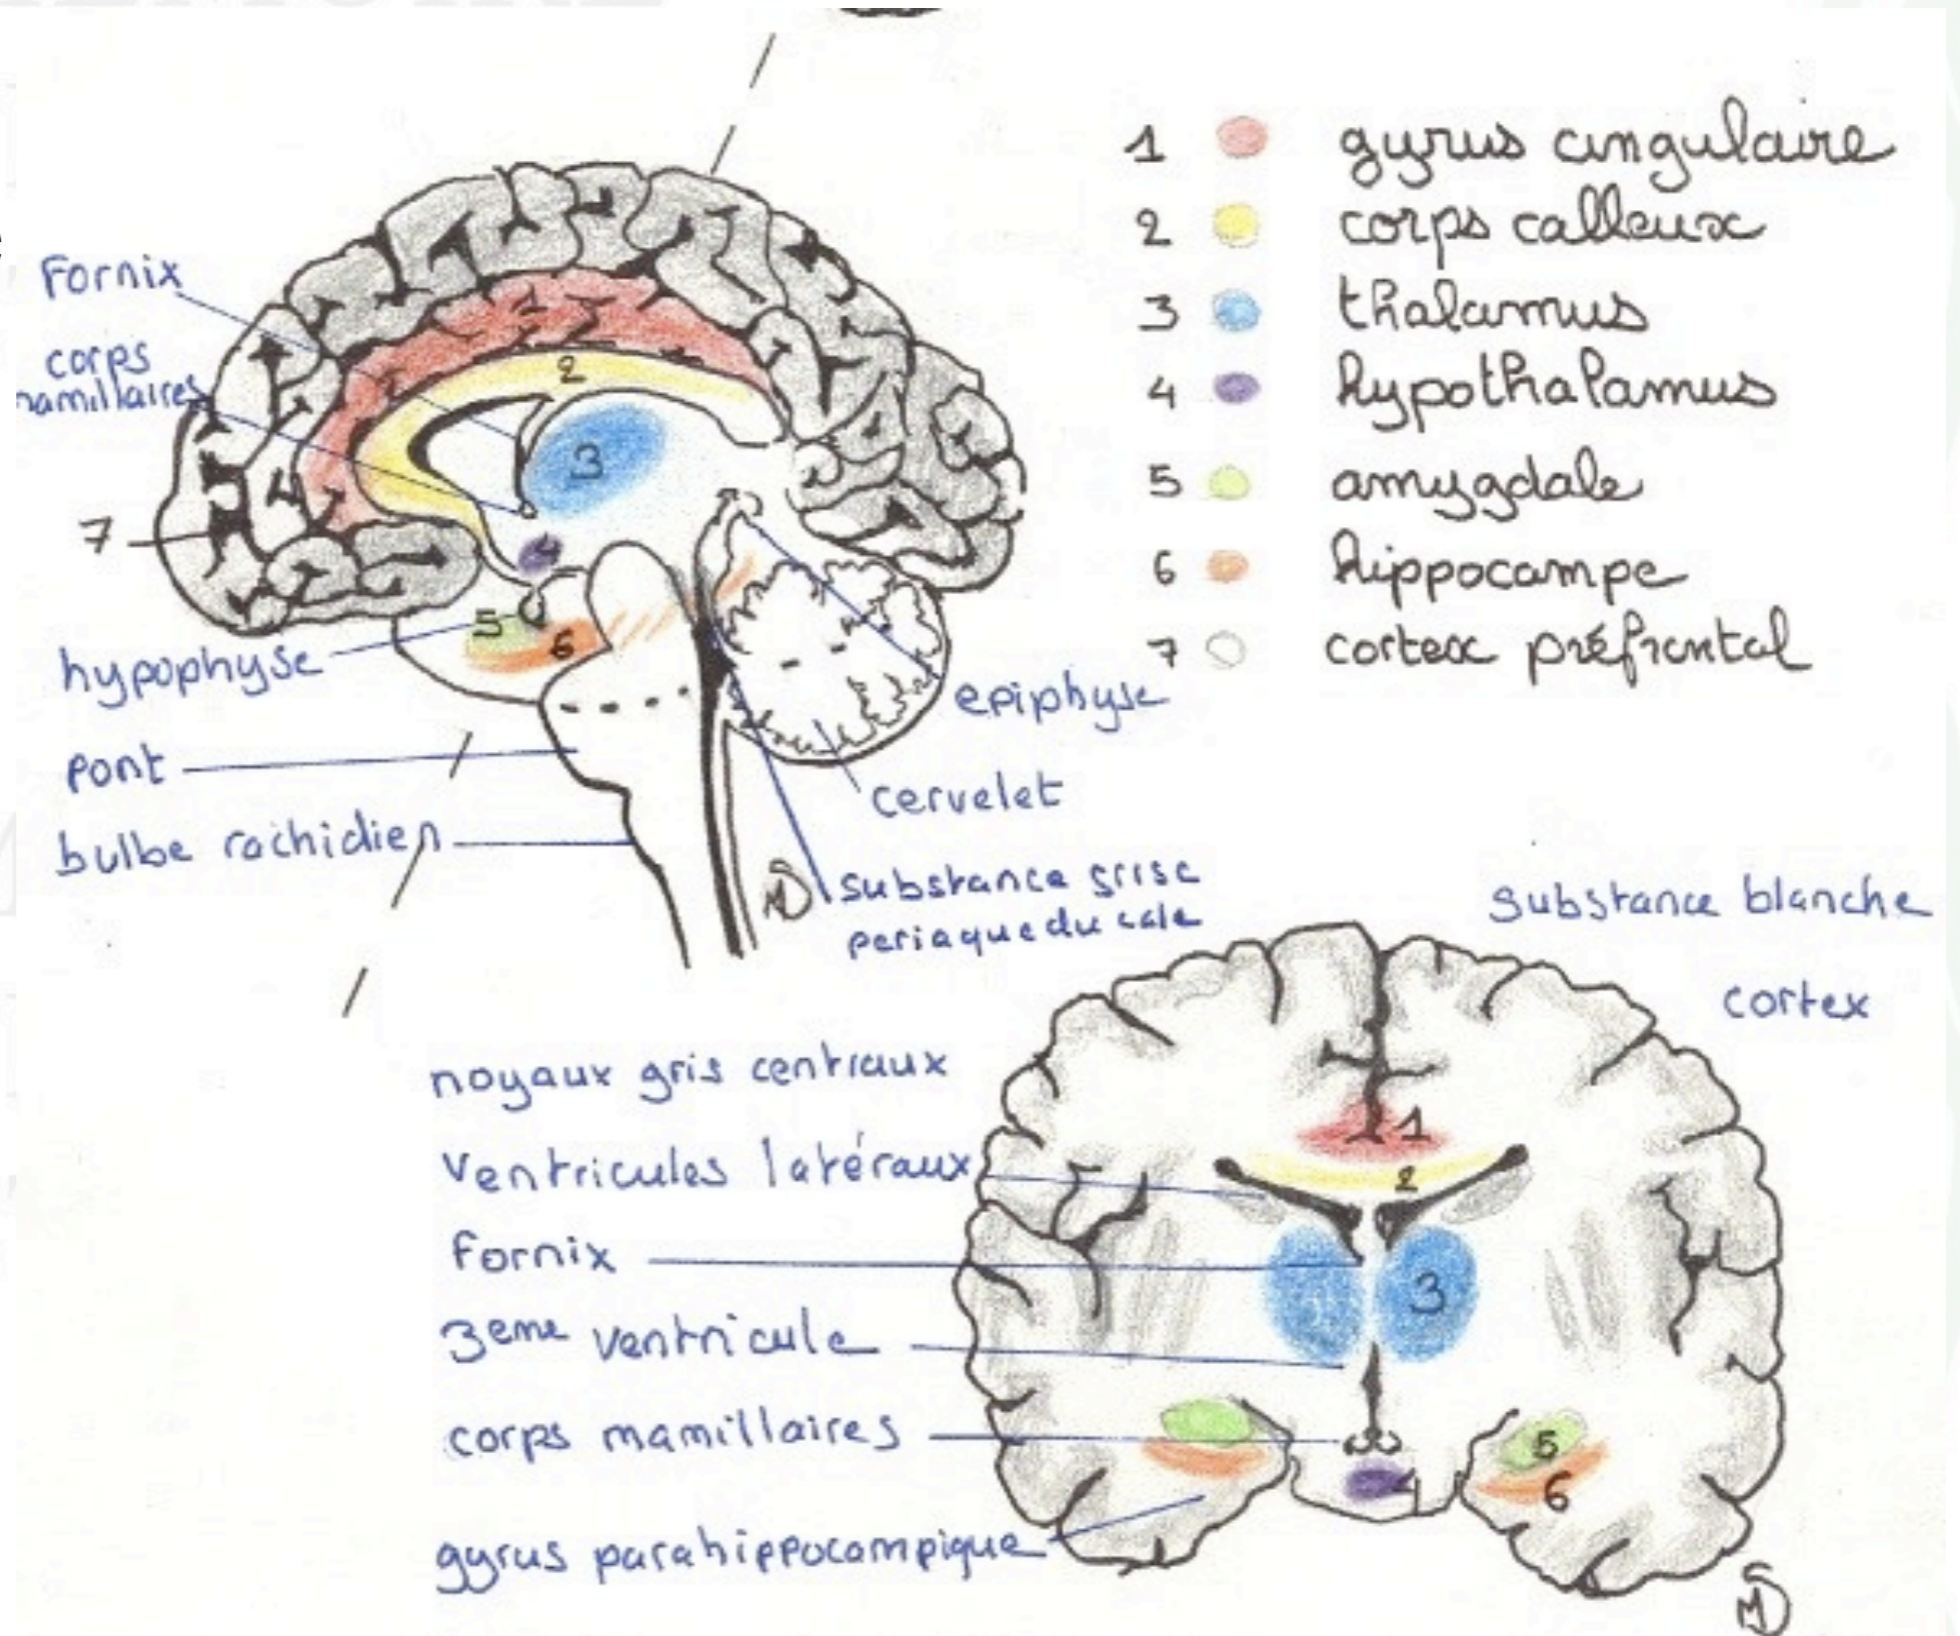 Fornix
corps
mamillaires
7
hypophyse
pont
bulbe rachidien
1
2
3
4
5
6
epiphyse
cervelet
substance grise
periaqueducale
1 gyrus cingulaire
2 corps calleux
3 thalamus
4 hypothalamus
5 amygdale
6 hippocampe
7 cortex préfrontal
substance blanche
cortex
noyaux gris centraux
Ventricules latéraux
fornix
3eme ventricule
corps mamillaires
gyrus parahippocampique
1
2
3
4
5
6